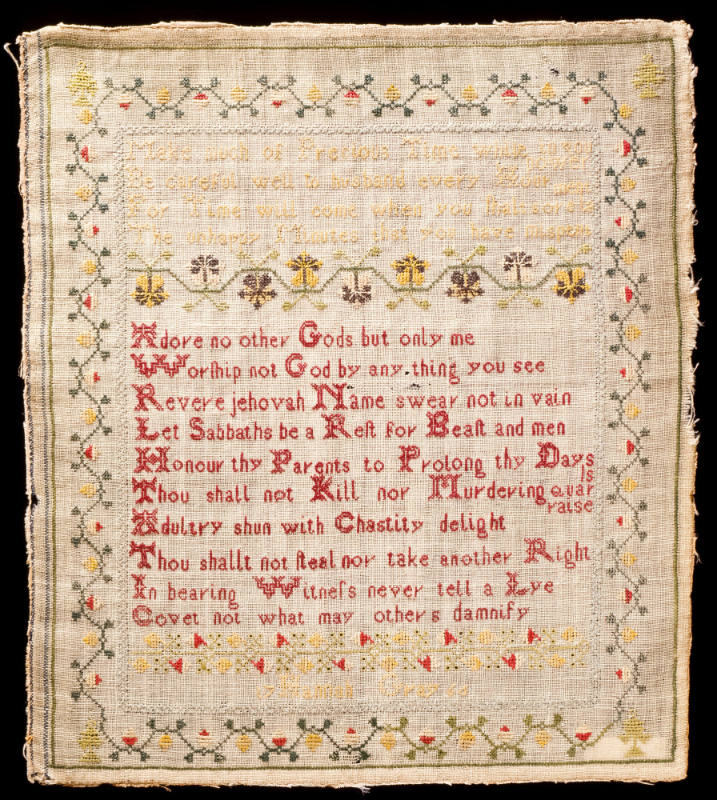 Make much of Precious Time
Be careful well to husband every Hour
For Time will come when you
The unhappy Minutes that you have
Adore no other Gods but only me
Worſhip not God by any thing you see
Revere jehovah Name swear not in vain
Let Sabbaths be a Reſt for Beaſt and men
Honour thy Parents to Prolong thy Days
Thou shall not Kill nor Murdering quar
is
raise
Adultry shun with Chastity delight
Thou shallt not ſteal nor take another Right
In bearing Witneſs never tell a Lye
Covet not what may others damnify